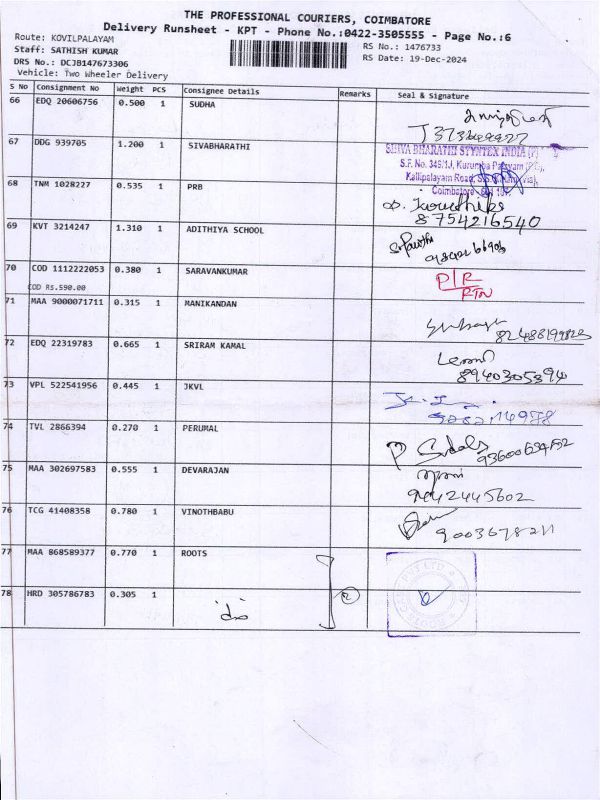 THE PROFESSIONAL COURIERS, COIMBATORE
Delivery Runsheet - KPT - Phone No.:0422-3505555 - Page No.:6
Route: KOVILPALAYAM
RS No.: 1476733
Staff: SATHISH KUMAR
RS Date: 19-Dec-2024
DRS No.: DCJB147673306
Vehicle: Two Wheeler Delivery
S No Consignment No Weight PCS Consignee Details Remarks Seal & Signature
66 EDQ 20606756 0.500 1 SUDHA
67 DDG 939705 1.200 1 SIVABHARATHI
SHIVA BHARATHI SYNTEX INDIA (P)
S.F. No. 345/1J, Kurumba Palayam
Kallipalayam Road,
Coimbatore
68 TNM 1028227 0.535 1 PRB
8754216540
69 KVT 3214247 1.310 1 ADITHIYA SCHOOL
70 COD 1112222053 0.380 1 SARAVANKUMAR P/R
COD Rs.590.00 RTN
71 MAA 9000071711 0.315 1 MANIKANDAN
72 EDQ 22319783 0.665 1 SRIRAM KAMAL
8940305394
73 VPL 522541956 0.445 1 JKVL
74 TVL 2866394 0.270 1 PERUMAL
75 MAA 302697583 0.555 1 DEVARAJAN
9442445602
76 TCG 41408358 0.780 1 VINOTHBABU
9003678211
77 MAA 868589377 0.770 1 ROOTS
78 HRD 305786783 0.305 1
2